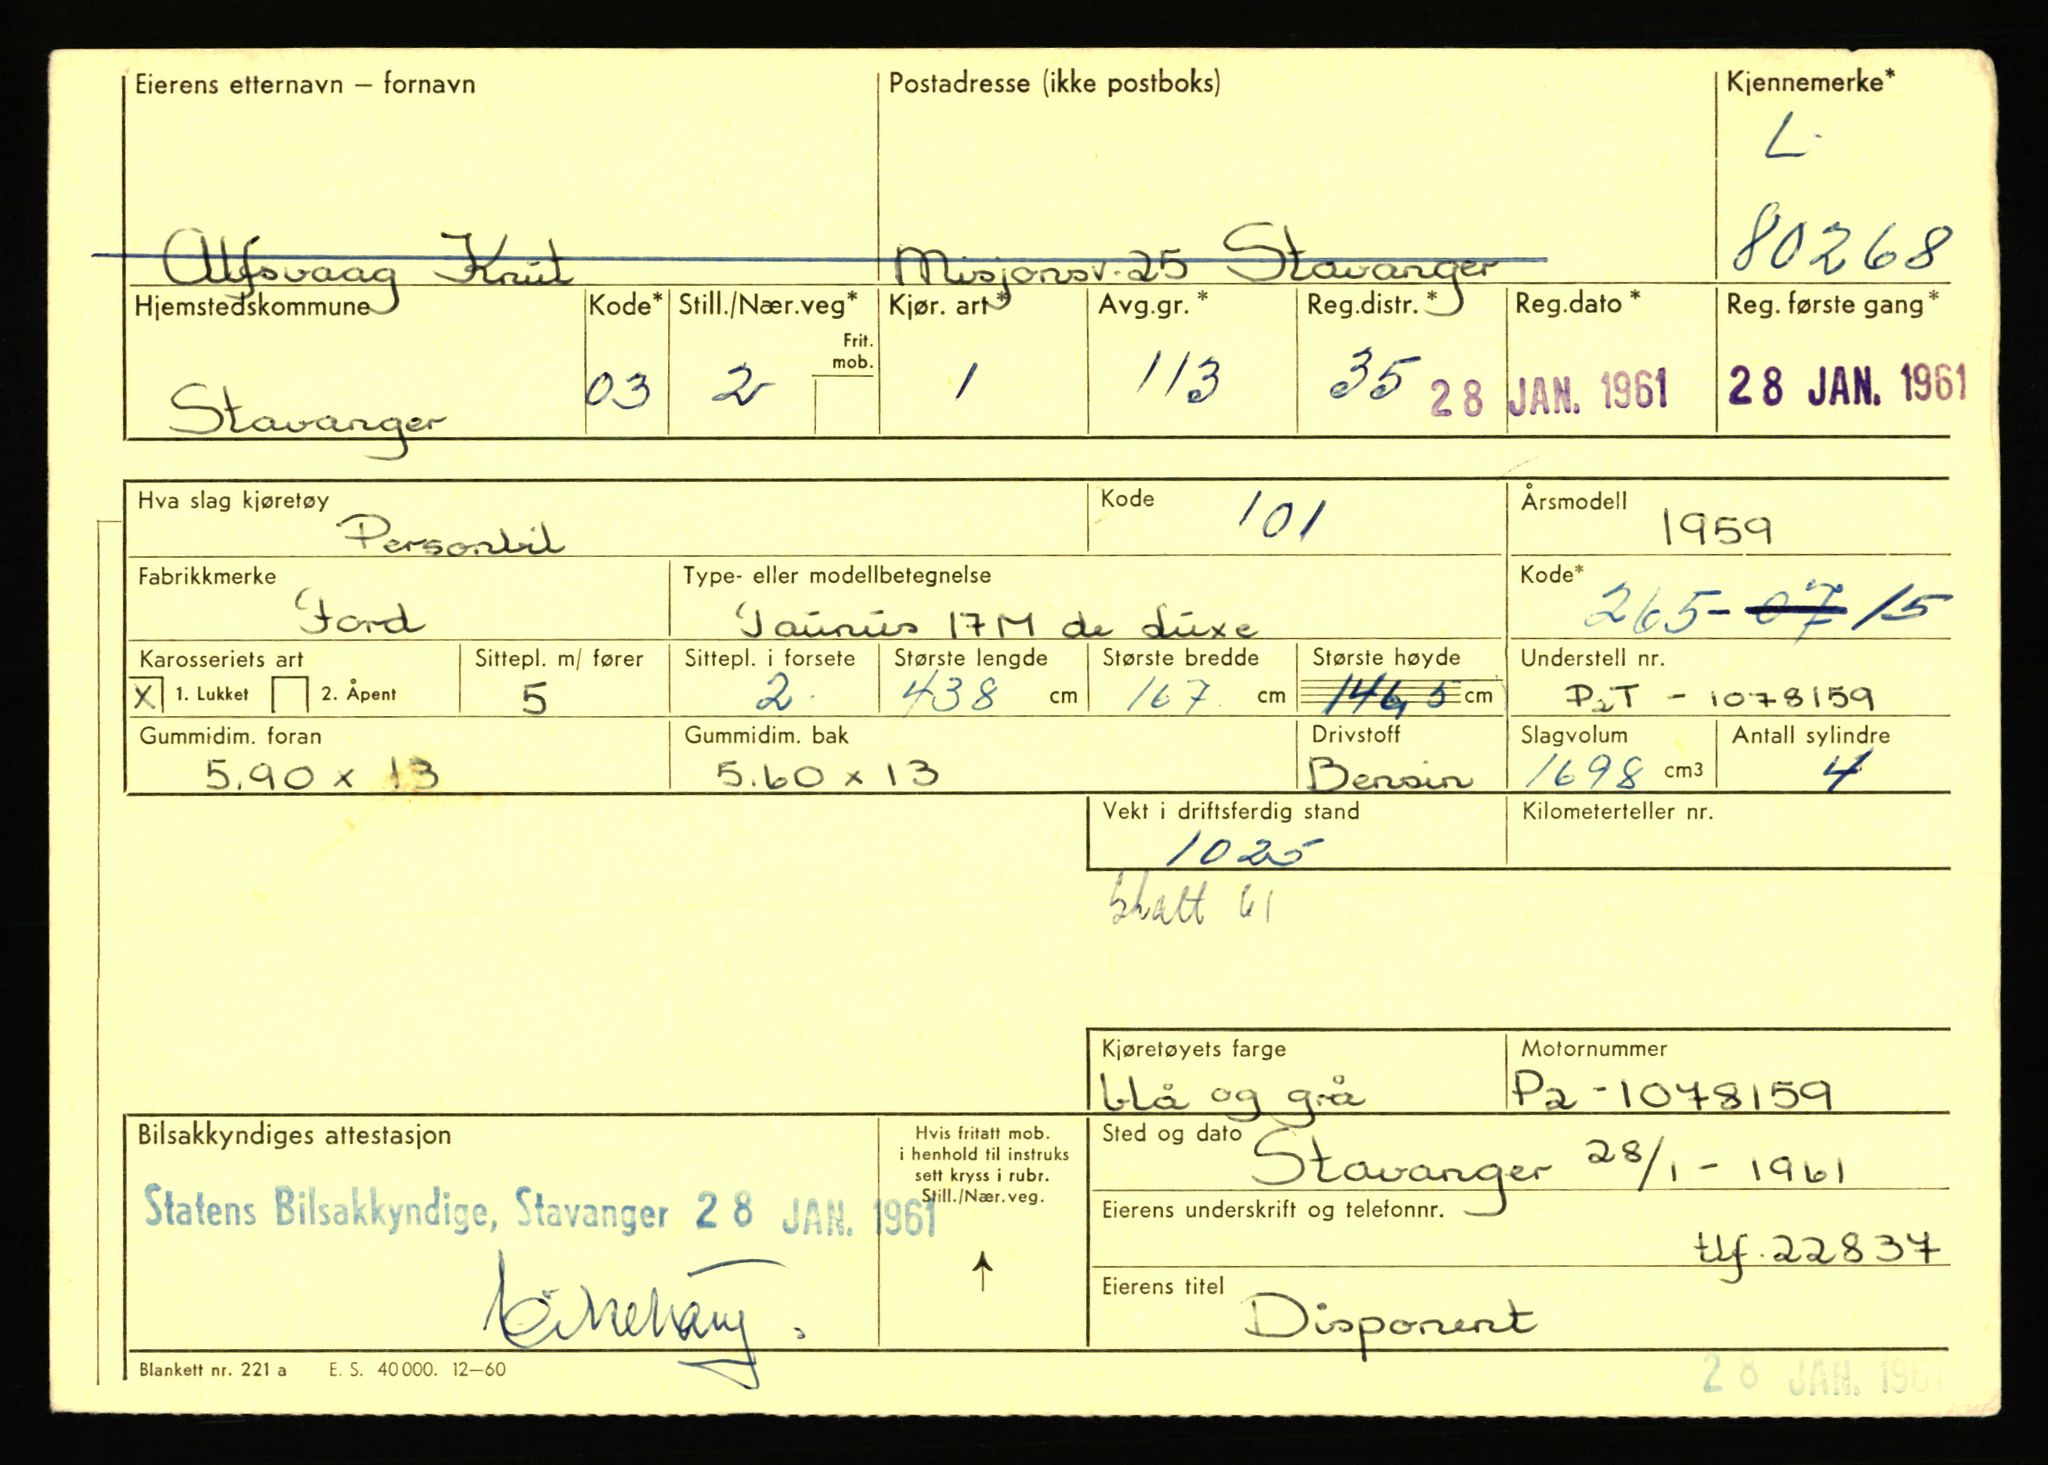 Eierens etternavn – fornavn Postadresse (ikke postboks) Kjennemerke*
L-
Alfsvaag Knut Misjonsv. 25 Stavanger 80268
Hjemstedskommune Kode* Still./Nær.veg* Kjør. art* Avg.gr.* Reg.distr.* Reg.dato* Reg. første gang*
Frit. mob.
Stavanger 03 2 1 113 35 28 JAN. 1961 28 JAN. 1961
Hva slag kjøretøy Kode Årsmodell
Personbil 101 1959
Fabrikkmerke Type- eller modellbetegnelse Kode*
Ford Taunus 17M de Luxe 265-07 15
Karosseriets art Sittepl. m/ fører Sittepl. i forsete Største lengde Største bredde Største høyde Understell nr.
X 1. Lukket 2. Åpent 5 2. 438 cm 167 cm 146,5 cm P2T - 1078159
Gummidim. foran Gummidim. bak Drivstoff Slagvolum Antall sylindre
5.90 x 13 5.60 x 13 Bensin 1698 cm3 4
Vekt i driftsferdig stand Kilometerteller nr.
1025
skatt 61
Kjøretøyets farge Motornummer
blå og grå P2-1078159
Bilsakkyndiges attestasjon Hvis fritatt mob. Sted og dato
i henhold til instruks
sett kryss i rubr.
Still./Nær.veg.
Stavanger 28/1 - 1961
Statens Bilsakkyndige, Stavanger 28 JAN. 1961 Eierens underskrift og telefonnr.
tlf. 22837
Eierens titel
Disponent
Blankett nr. 221 a E. S. 40000. 12–60
28 JAN. 1961